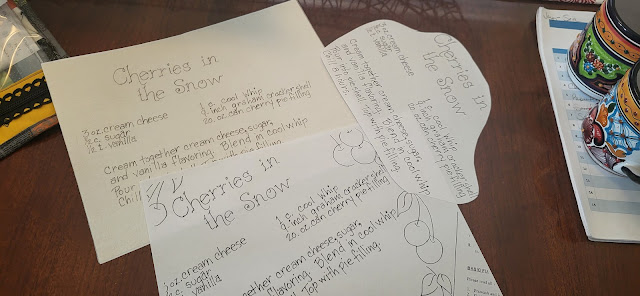 Cherries in
the Snow
3 oz. cream cheese
c. sugar
t. vanilla
c. cool whip
inch graham cracker shell
20 oz. can cherry pie filling
Cream together cream cheese, sugar,
and vanilla flavoring. Blend in cool whip
Pour
Chill
Cherries in
the Snow
oz cream cheese
c. sugar
t. vanilla
c. cool whip
inch graham cracker shell
20 oz. can cherry pie filling
Cream together cream cheese, sugar,
and vanilla flavoring. Blend in cool whip
Pour into pie shell. Top with pie filling.
Chill
Cherries in
the Snow
oz cream cheese
c. sugar
vanilla
c. cool whip
inch graham cracker shell
20 oz. can cherry pie filling
together cream cheese, sugar,
vanilla flavoring. Blend in cool whip
Top with pie filling.